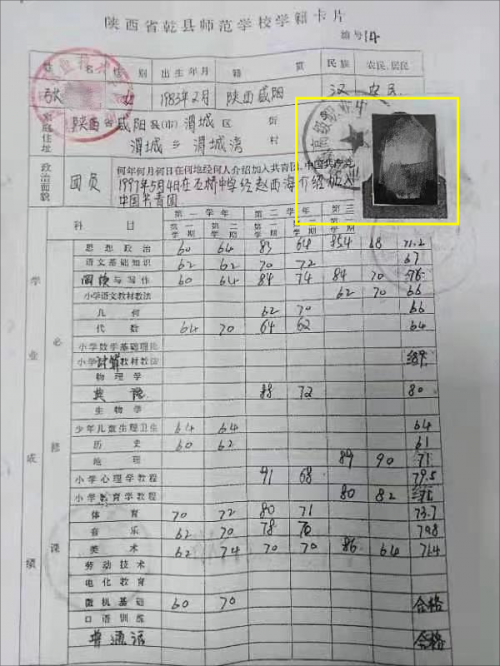 陕西省乾县师范学校学籍卡片
编号14
姓名 性别 出生年月 籍贯 民族 农民、居民
张 1983年2月 陕西咸阳 汉 农民
家庭住址 陕西省咸阳县(市)渭城区 街
渭城乡渭城湾村
政治面貌 团员 何年何月何日在何地经何人介绍加入共青团、中国共产党
1997年5月4日在石桥中学经赵西海介绍加入
中国共青团
科目 第一学年 第二学年 第三
第一学期 第二学期 第一学期 第二学期 第一学期
学业成绩
必修课
思想政治 60 64 83 64 85.4 68 71.2
语文基础知识 62 62 70 72 67
阅读与写作 60 64 84 74 84 70 76
小学语文教材教法 62 70 66
几何 62 70 66
代数 64 70 64 62 64
小学数学基础理论
小学计算教材教法
物理学
88 72 80
生物学
少年儿童生理卫生 64 64 64
历史 60 62 61
地理 89 90
小学心理学教程 91 68 79.5
小学教育学教程 80 82
体育 70 72 80 71 73.7
音乐 62 70 78 70
美术 62 74 70 70 86 64 71.4
劳动技术
电化教育
微机基础 60 70 合格
口语训练
普通话 合格